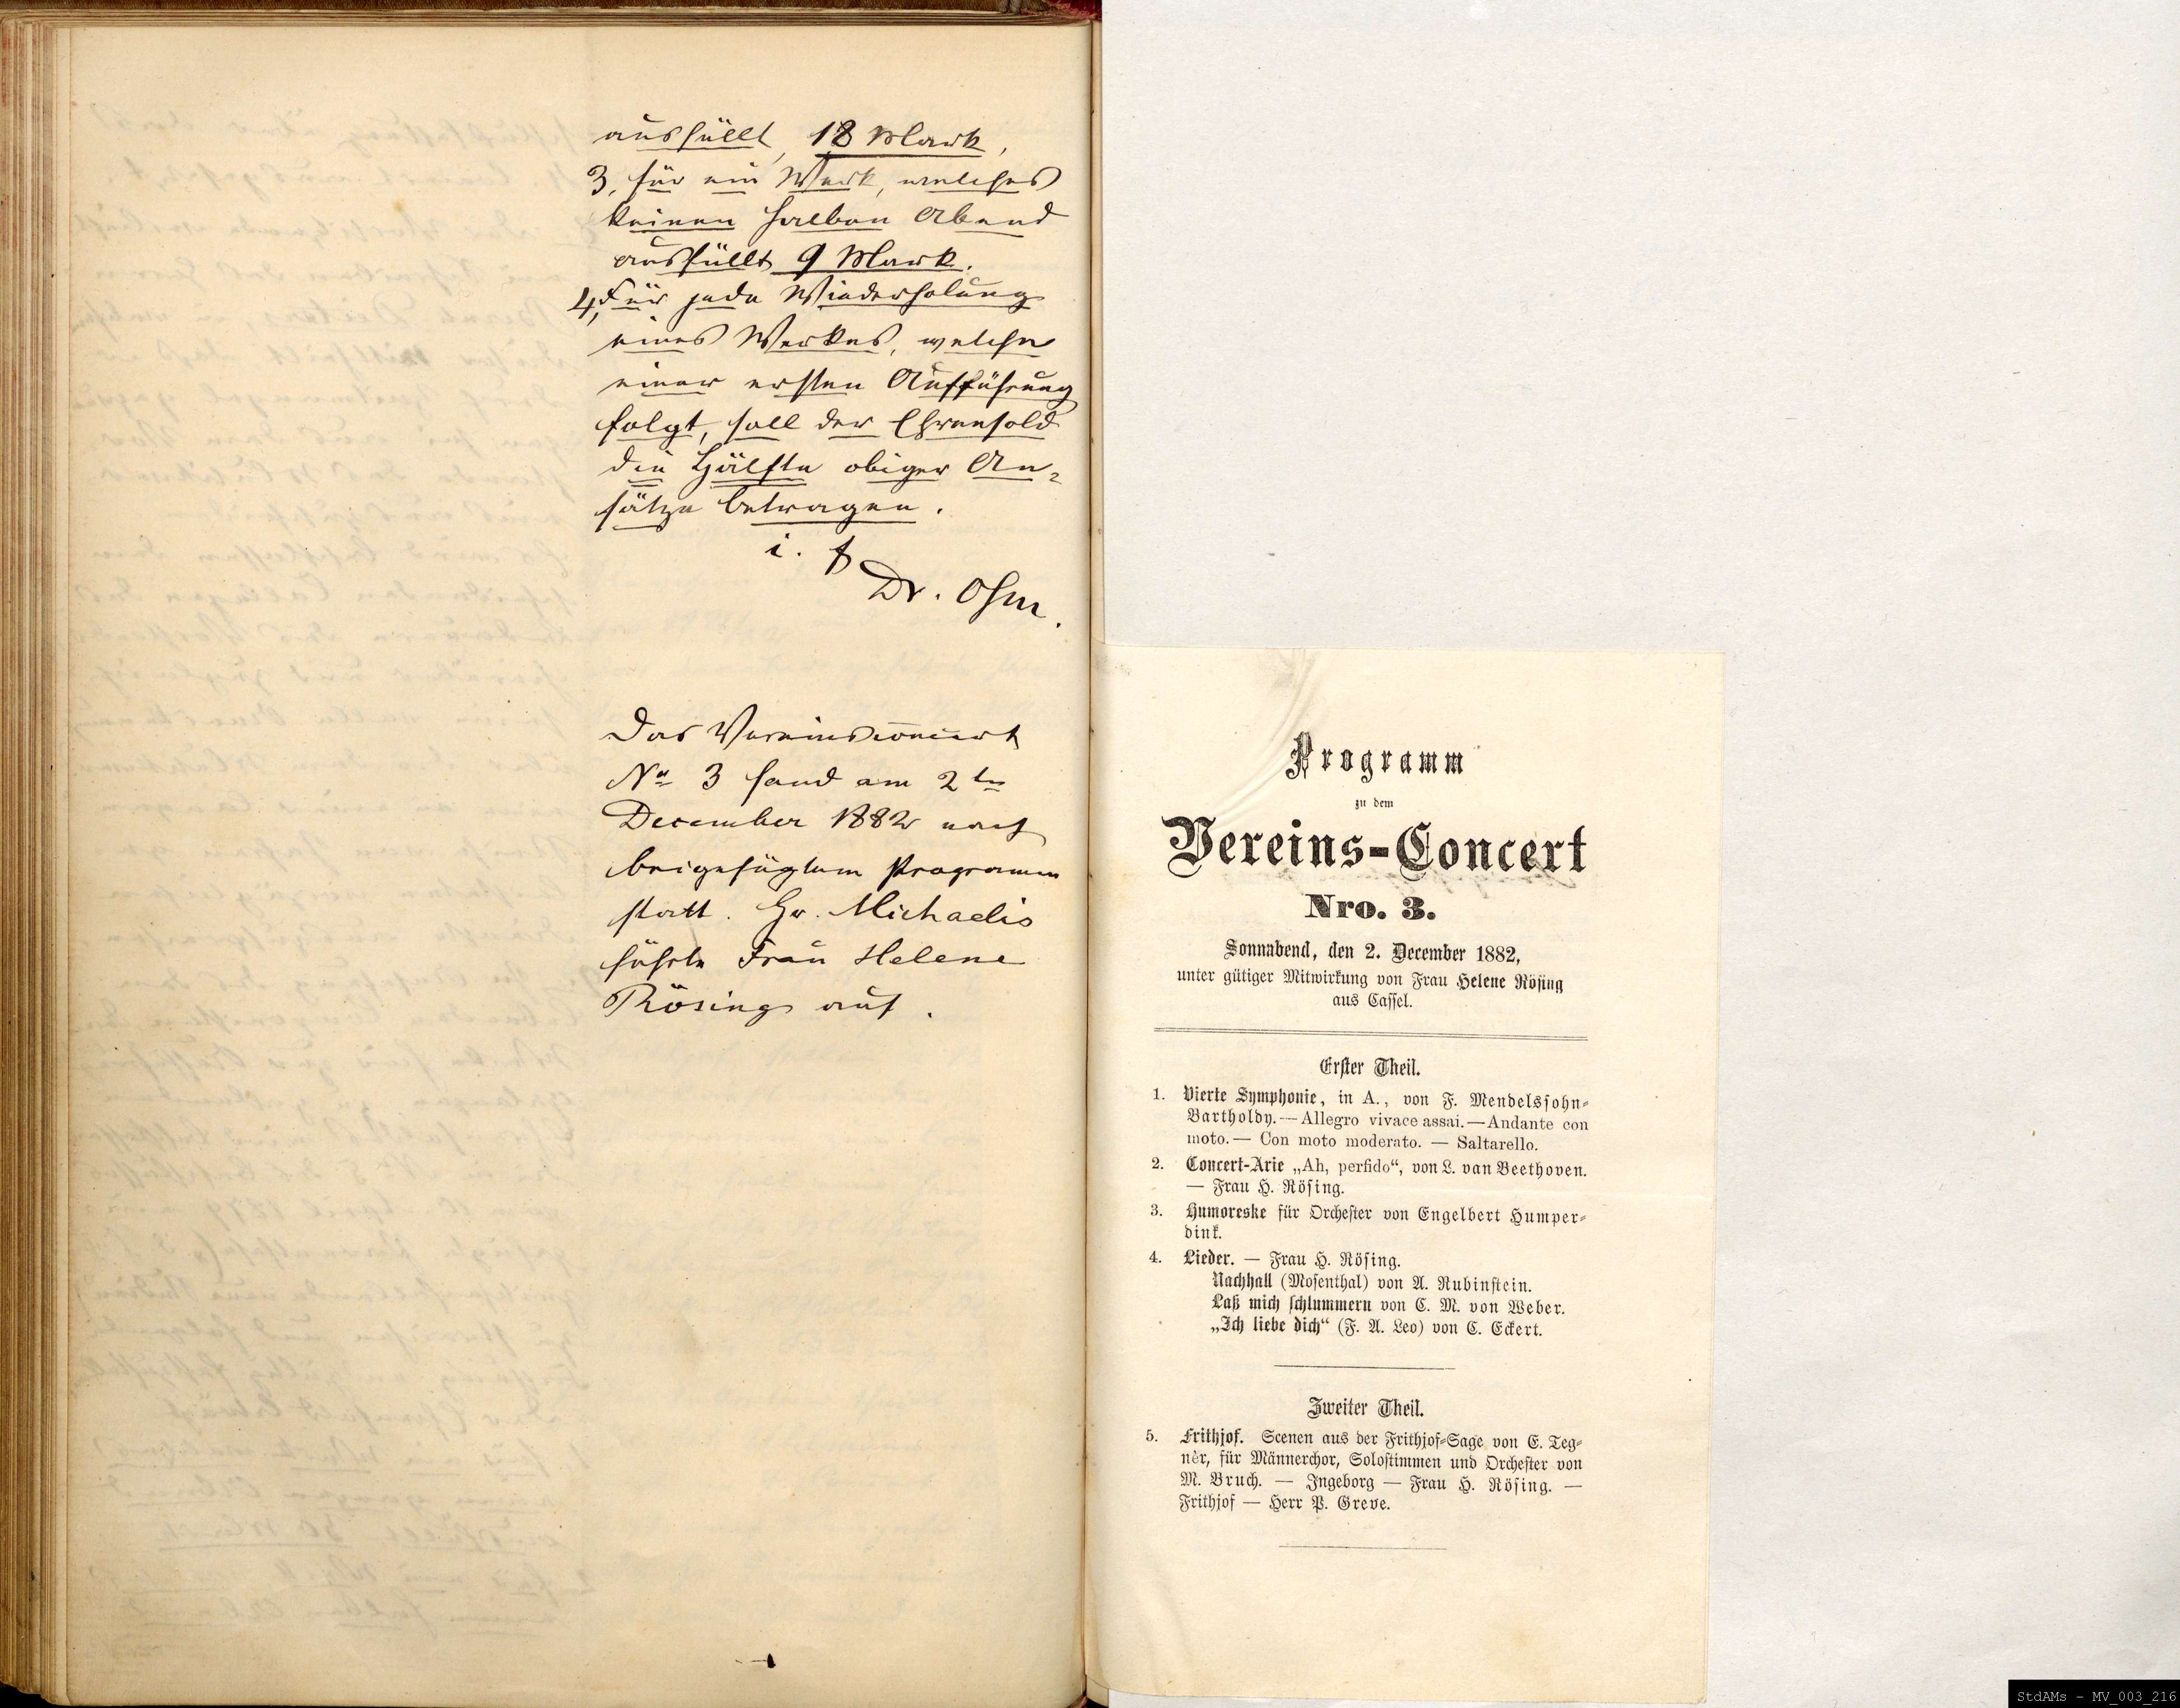 ausfüllt, 18 Mark,
3, für ein Werk, welches
keinen halben Abend
ausfüllt 9 Mark.
4, Für jede Wiederholung
eines Werkes, welche
einer ersten Aufführung
folgt, soll der Ehrensold
die Hälfte obiger An-
sätze betragen.
i. f
Dr. Ohm.
Das Vereinsconcert
No 3 fand am 2ten
December 1882 nach
beigefügtem Programm
statt. Hr. Michaelis
führte Frau Helene
Rösing auf.
Programm
zu dem
Vereins-Concert
Nro. 3.
Sonnabend, den 2. December 1882,
unter gütiger Mitwirkung von Frau Helene Rösing
aus Cassel.
Erster Theil.
1. Vierte Symphonie, in A., von F. Mendelssohn-
Bartholdy. — Allegro vivace assai. — Andante con
moto. — Con moto moderato. — Saltarello.
2. Concert-Arie „Ah, perfido“, von L. van Beethoven.
— Frau H. Rösing.
3. Humoreske für Orchester von Engelbert Humper-
dink.
4. Lieder. — Frau H. Rösing.
Nachhall (Mosenthal) von A. Rubinstein.
Laß mich schlummern von C. M. von Weber.
„Ich liebe dich“ (F. A. Leo) von C. Eckert.
Zweiter Theil.
5. Frithjof. Scenen aus der Frithjof-Sage von E. Teg-
nèr, für Männerchor, Solostimmen und Orchester von
M. Bruch. — Ingeborg — Frau H. Rösing. —
Frithjof — Herr P. Greve.
StdAMs - MV_003_216